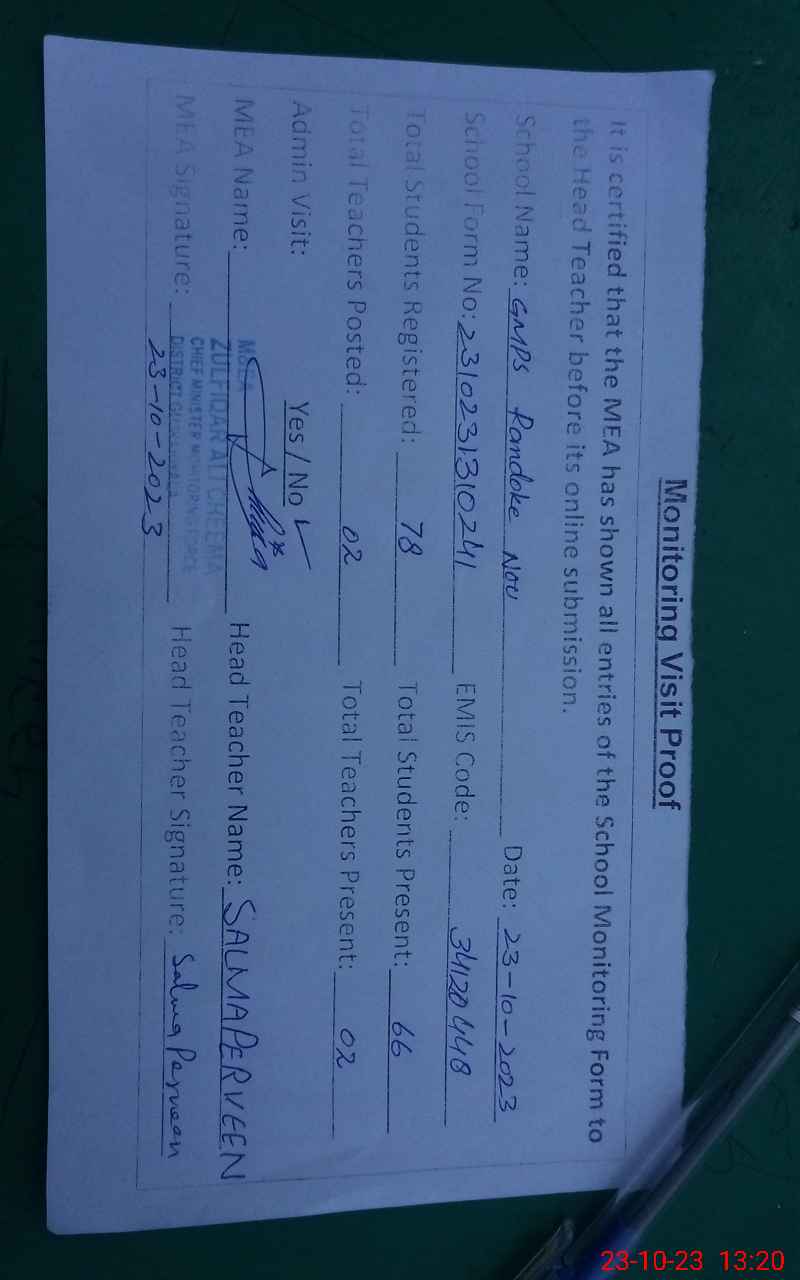 Monitoring Visit Proof
It is certified that the MEA has shown all entries of the School Monitoring Form to
the Head Teacher before its online submission.
School Name: GMPS Randoke Nou Date: 23-10-2023
School Form No: 2310231310241 EMIS Code: 34120448
Total Students Registered: 78 Total Students Present: 66
Total Teachers Posted: 02 Total Teachers Present: 02
Admin Visit: Yes / No ✓
MEA Name: Head Teacher Name: SALMA PERVEEN
ZULFIQAR ALI CHEEMA
CHIEF MINISTER MONITORING FORCE
DISTRICT
MEA Signature: Head Teacher Signature: Salma Perveen
23-10-2023
23-10-23 13:20